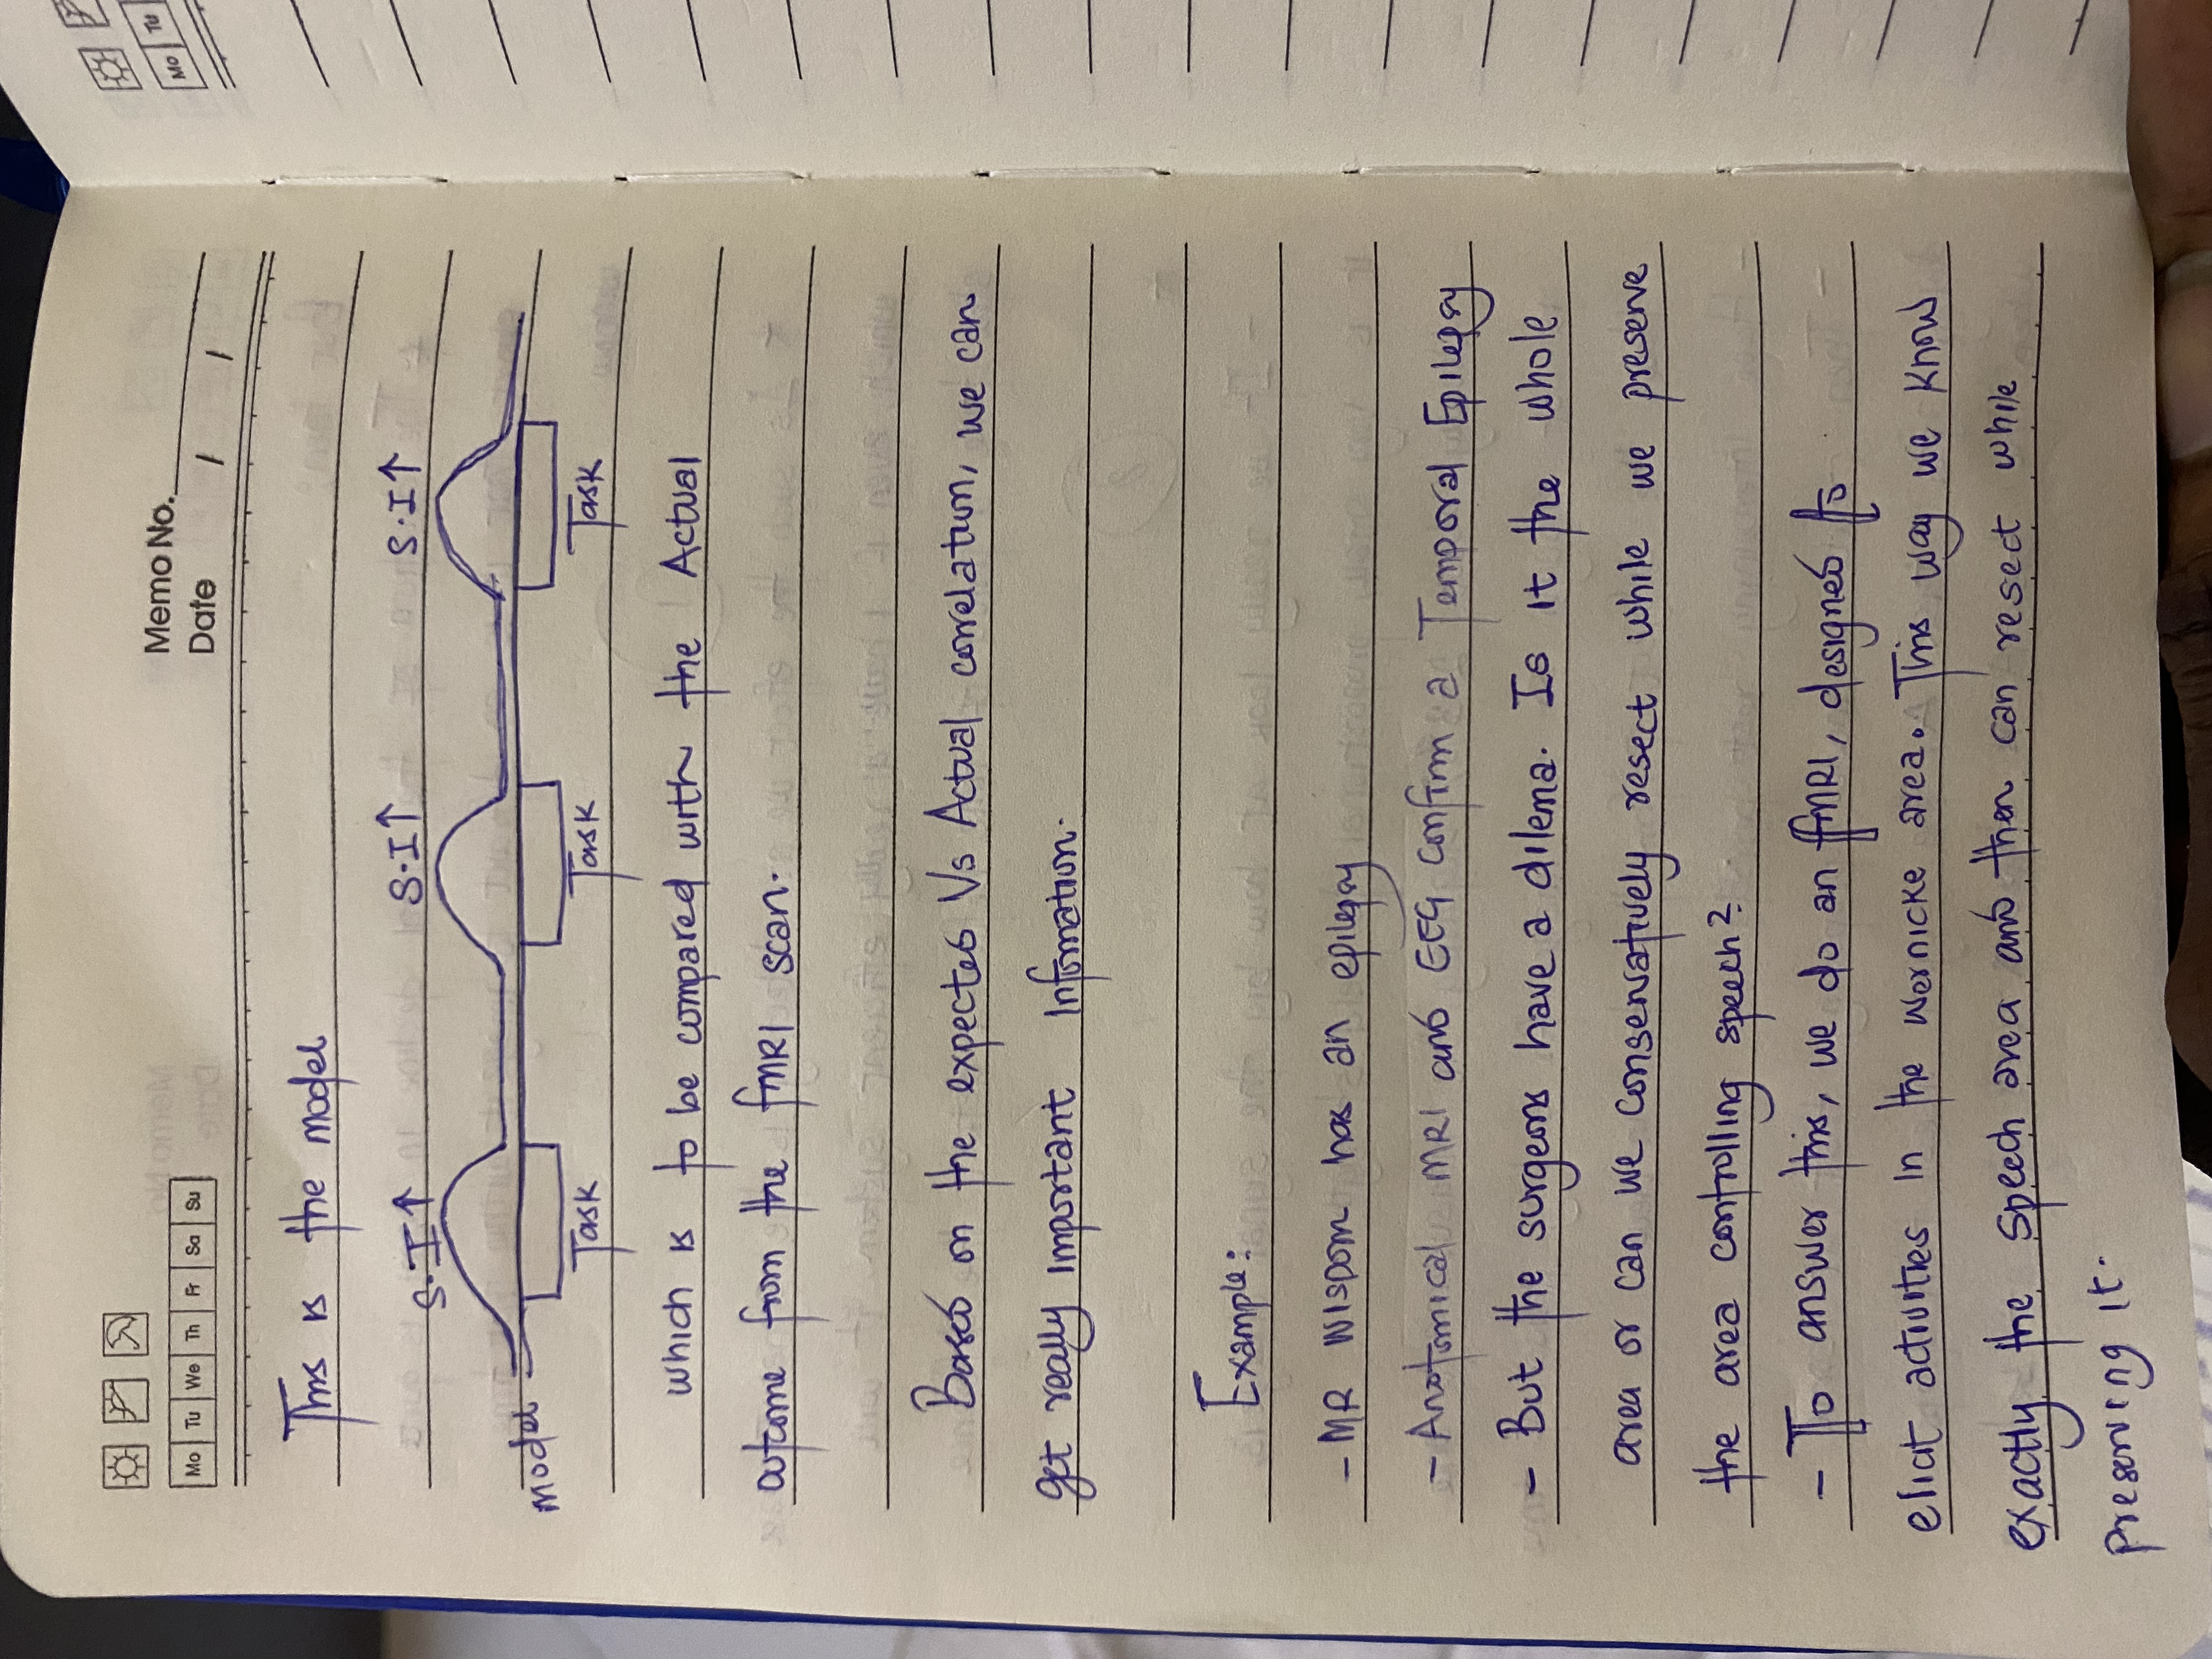 Memo No.
Date / /
Mo Tu We Th Fr Sa Su
This is the model
S.I↑ S.I↑ S.I↑
model
Task Task Task
which is to be compared with the Actual
outcome from the fMRI scan.
Based on the expected Vs Actual correlation, we can
get really important Information.
Example:
- MR WISDOM has an epilepsy
- Anatomical MRI and EEG confirm a Temporal Epilepsy
- But the surgeons have a dilema. Is it the whole
area or can we conservatively resect while we preserve
the area controlling speech?
- To answer this, we do an fMRI, designed to
elicit activities in the wernicke area. This way we know
exactly the speech area and then can resect while
preserving it.
Mo Tu